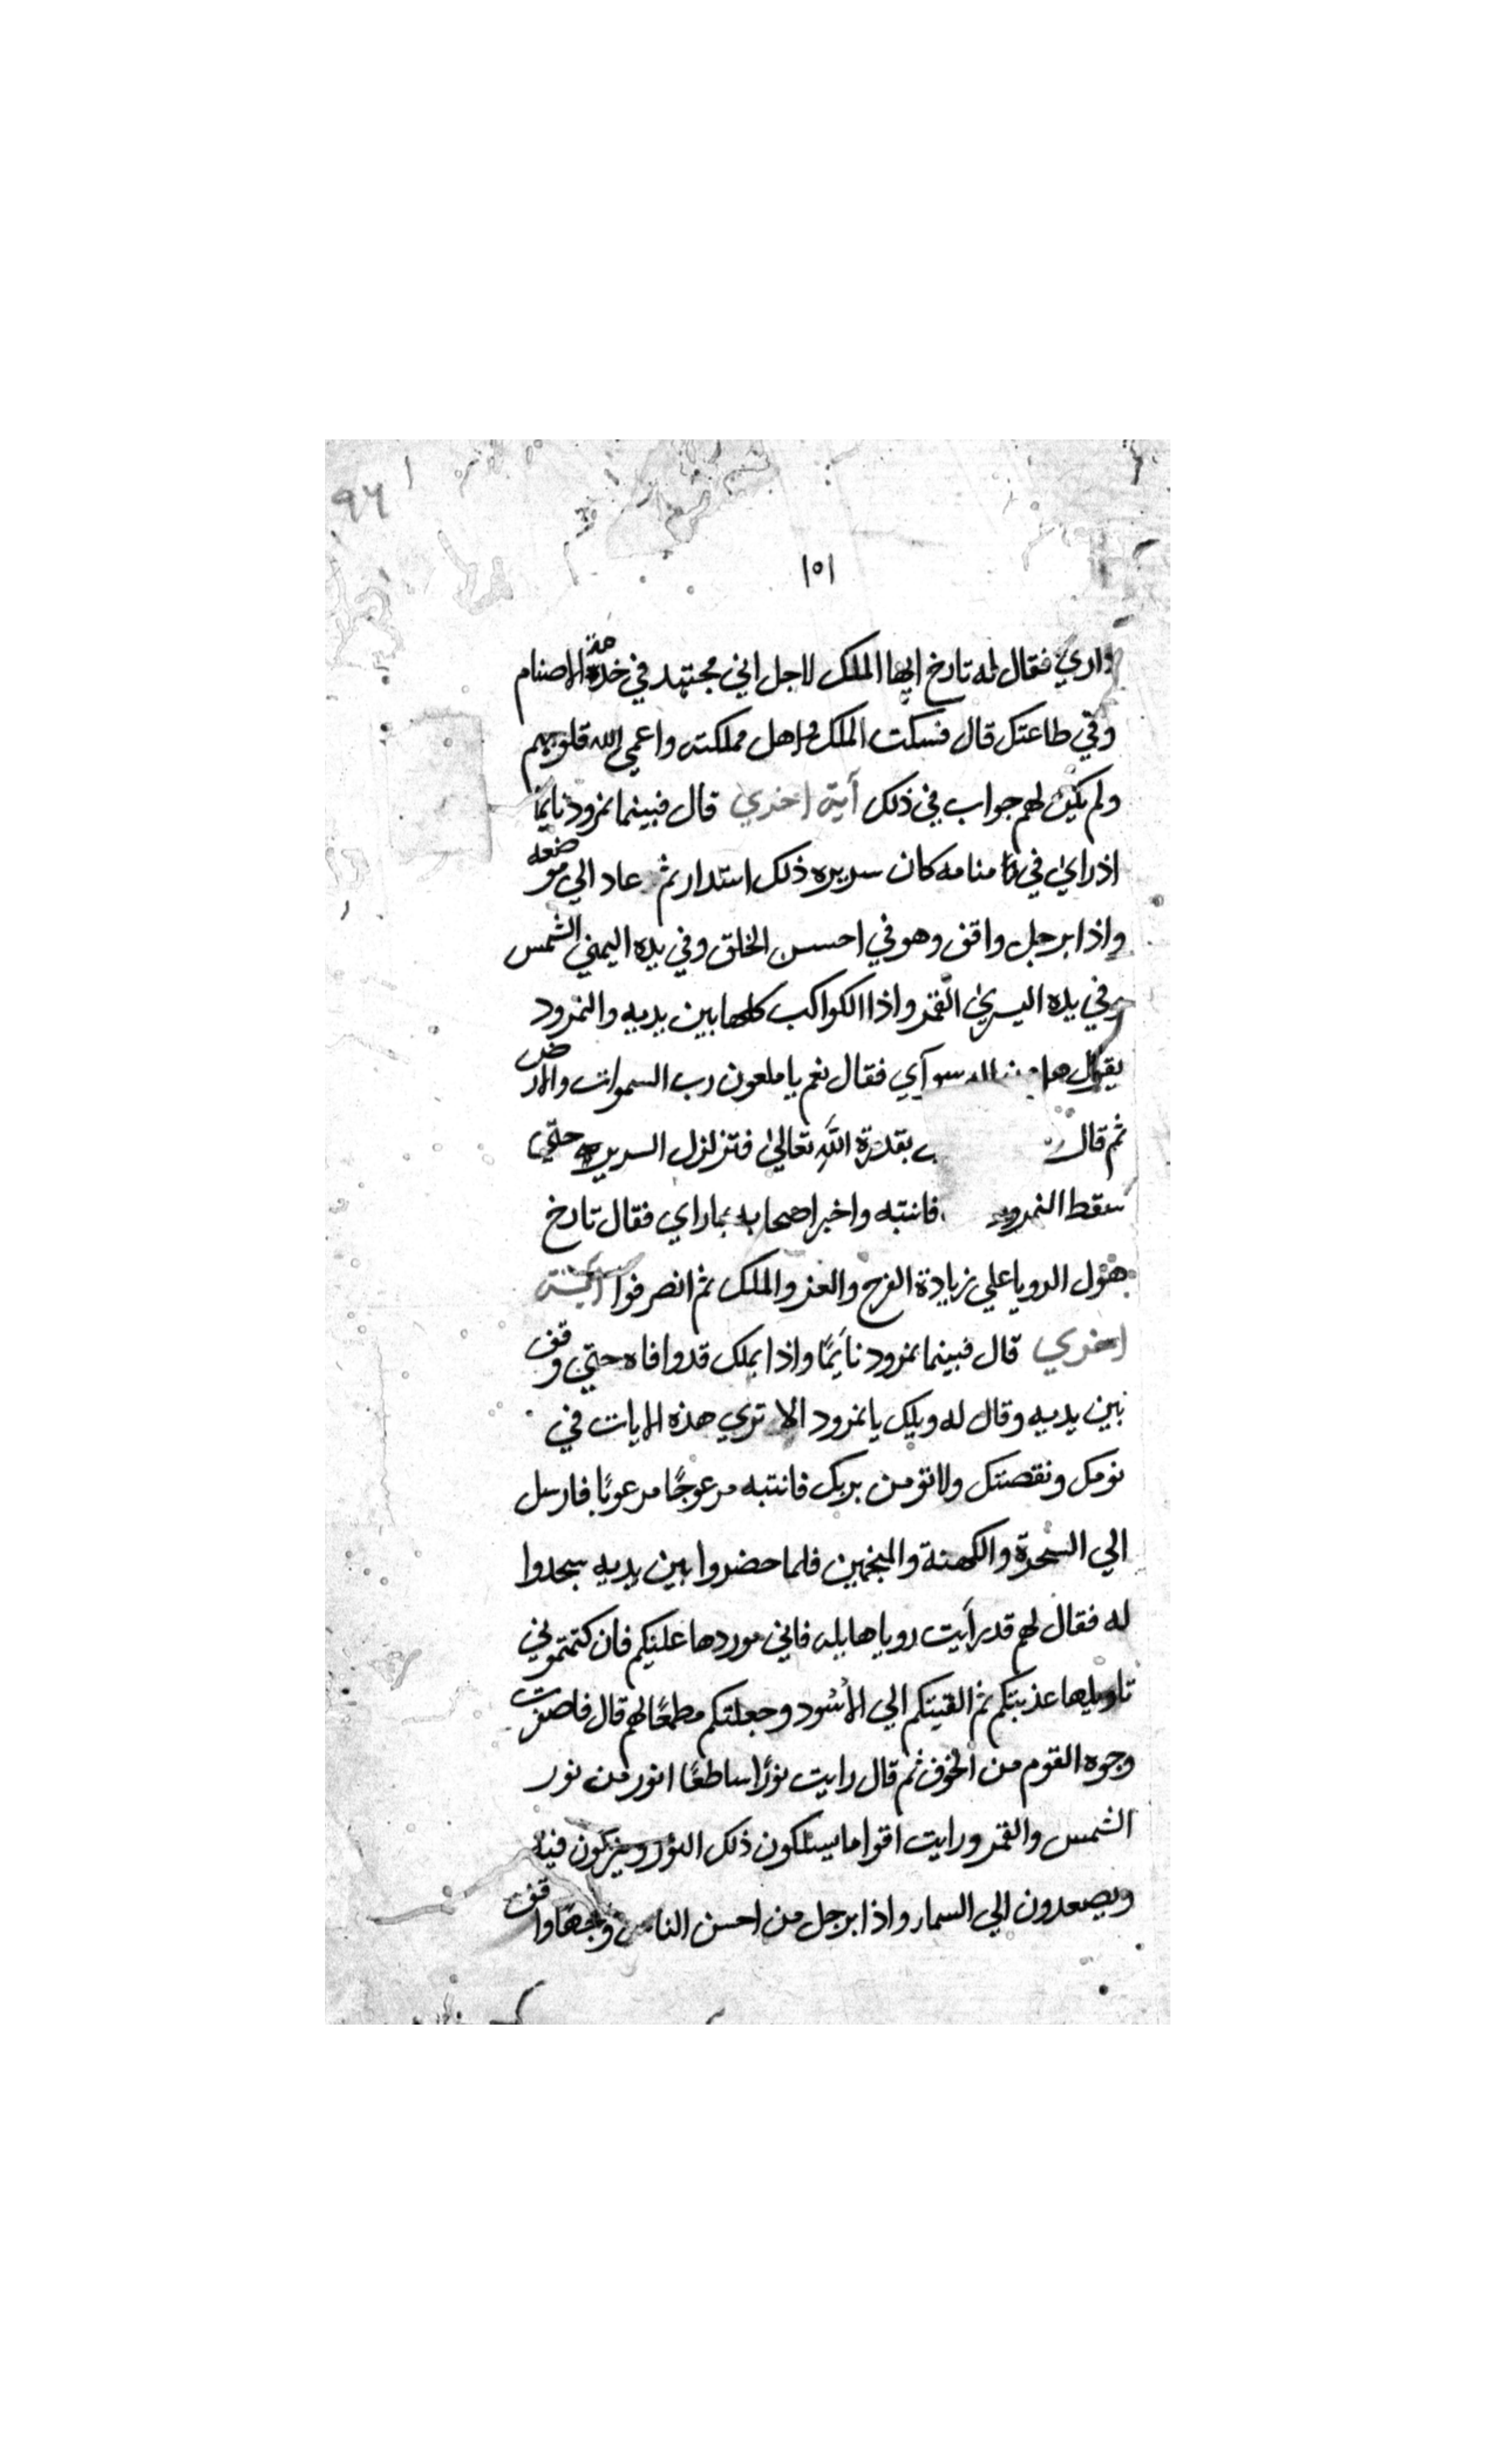 ٩٦
١٥١
داري فقال له تارخ ايها الملك لاجل اني مجتهد في خدمة هذه الاصنام
وفي طاعتك قال فسكت الملك واهل مملكته واعمي الله قلوبهم
ولم يكن لهم جواب في ذلك آية اخري قال فبينما نمرود نايمًا
اذ راي في منامه كان سريره ذلك استدار ثم عاد الي موضعه
واذا برجل واقف وهو في احسن الخلق وفي يده اليمني الشمس
وفي يده اليسري القمر واذا الكواكب كلها بين يديه والنمرود
يقول سوآي فقال نعم يا ملعون رب السموات والارض
ثم قال بقدرة الله تعالي فتزلزل السرير حتي
سقط النمرود فانتبه واخبر اصحابه بما راي فقال تارخ
هول الرويا علي زيادة الفرح والعز والملك ثم انصرفوا آية
اخري قال فبينما نمرود نايمًا واذا بملك قد وافاه حتي وقف
بين يديه وقال له ويلك يا نمرود الا تري هذه الايات في
نومك ونقصتك ولا تومن بربك فانتبه مرعوجًا مرعوبًا فارسل
الي السحرة والكهنة والمنجمين فلما حضروا بين يديه سجدوا
له فقال لهم قد رأيت رويا هايله فاني موردها عليكم فان كتمتموني
تاويلها عذبتكم ثم القيتكم الي الأسود وجعلتكم مطعمًا لهم قال فاصفرت
وجوه القوم من الخوف ثم قال رايت نورًا ساطعًا انور من نور
الشمس والقمر ورايت اقواما يسلكون ذلك النور وينزلون فيه
ويصعدون الي السمار واذا برجل من احسن الناس وجها واقف